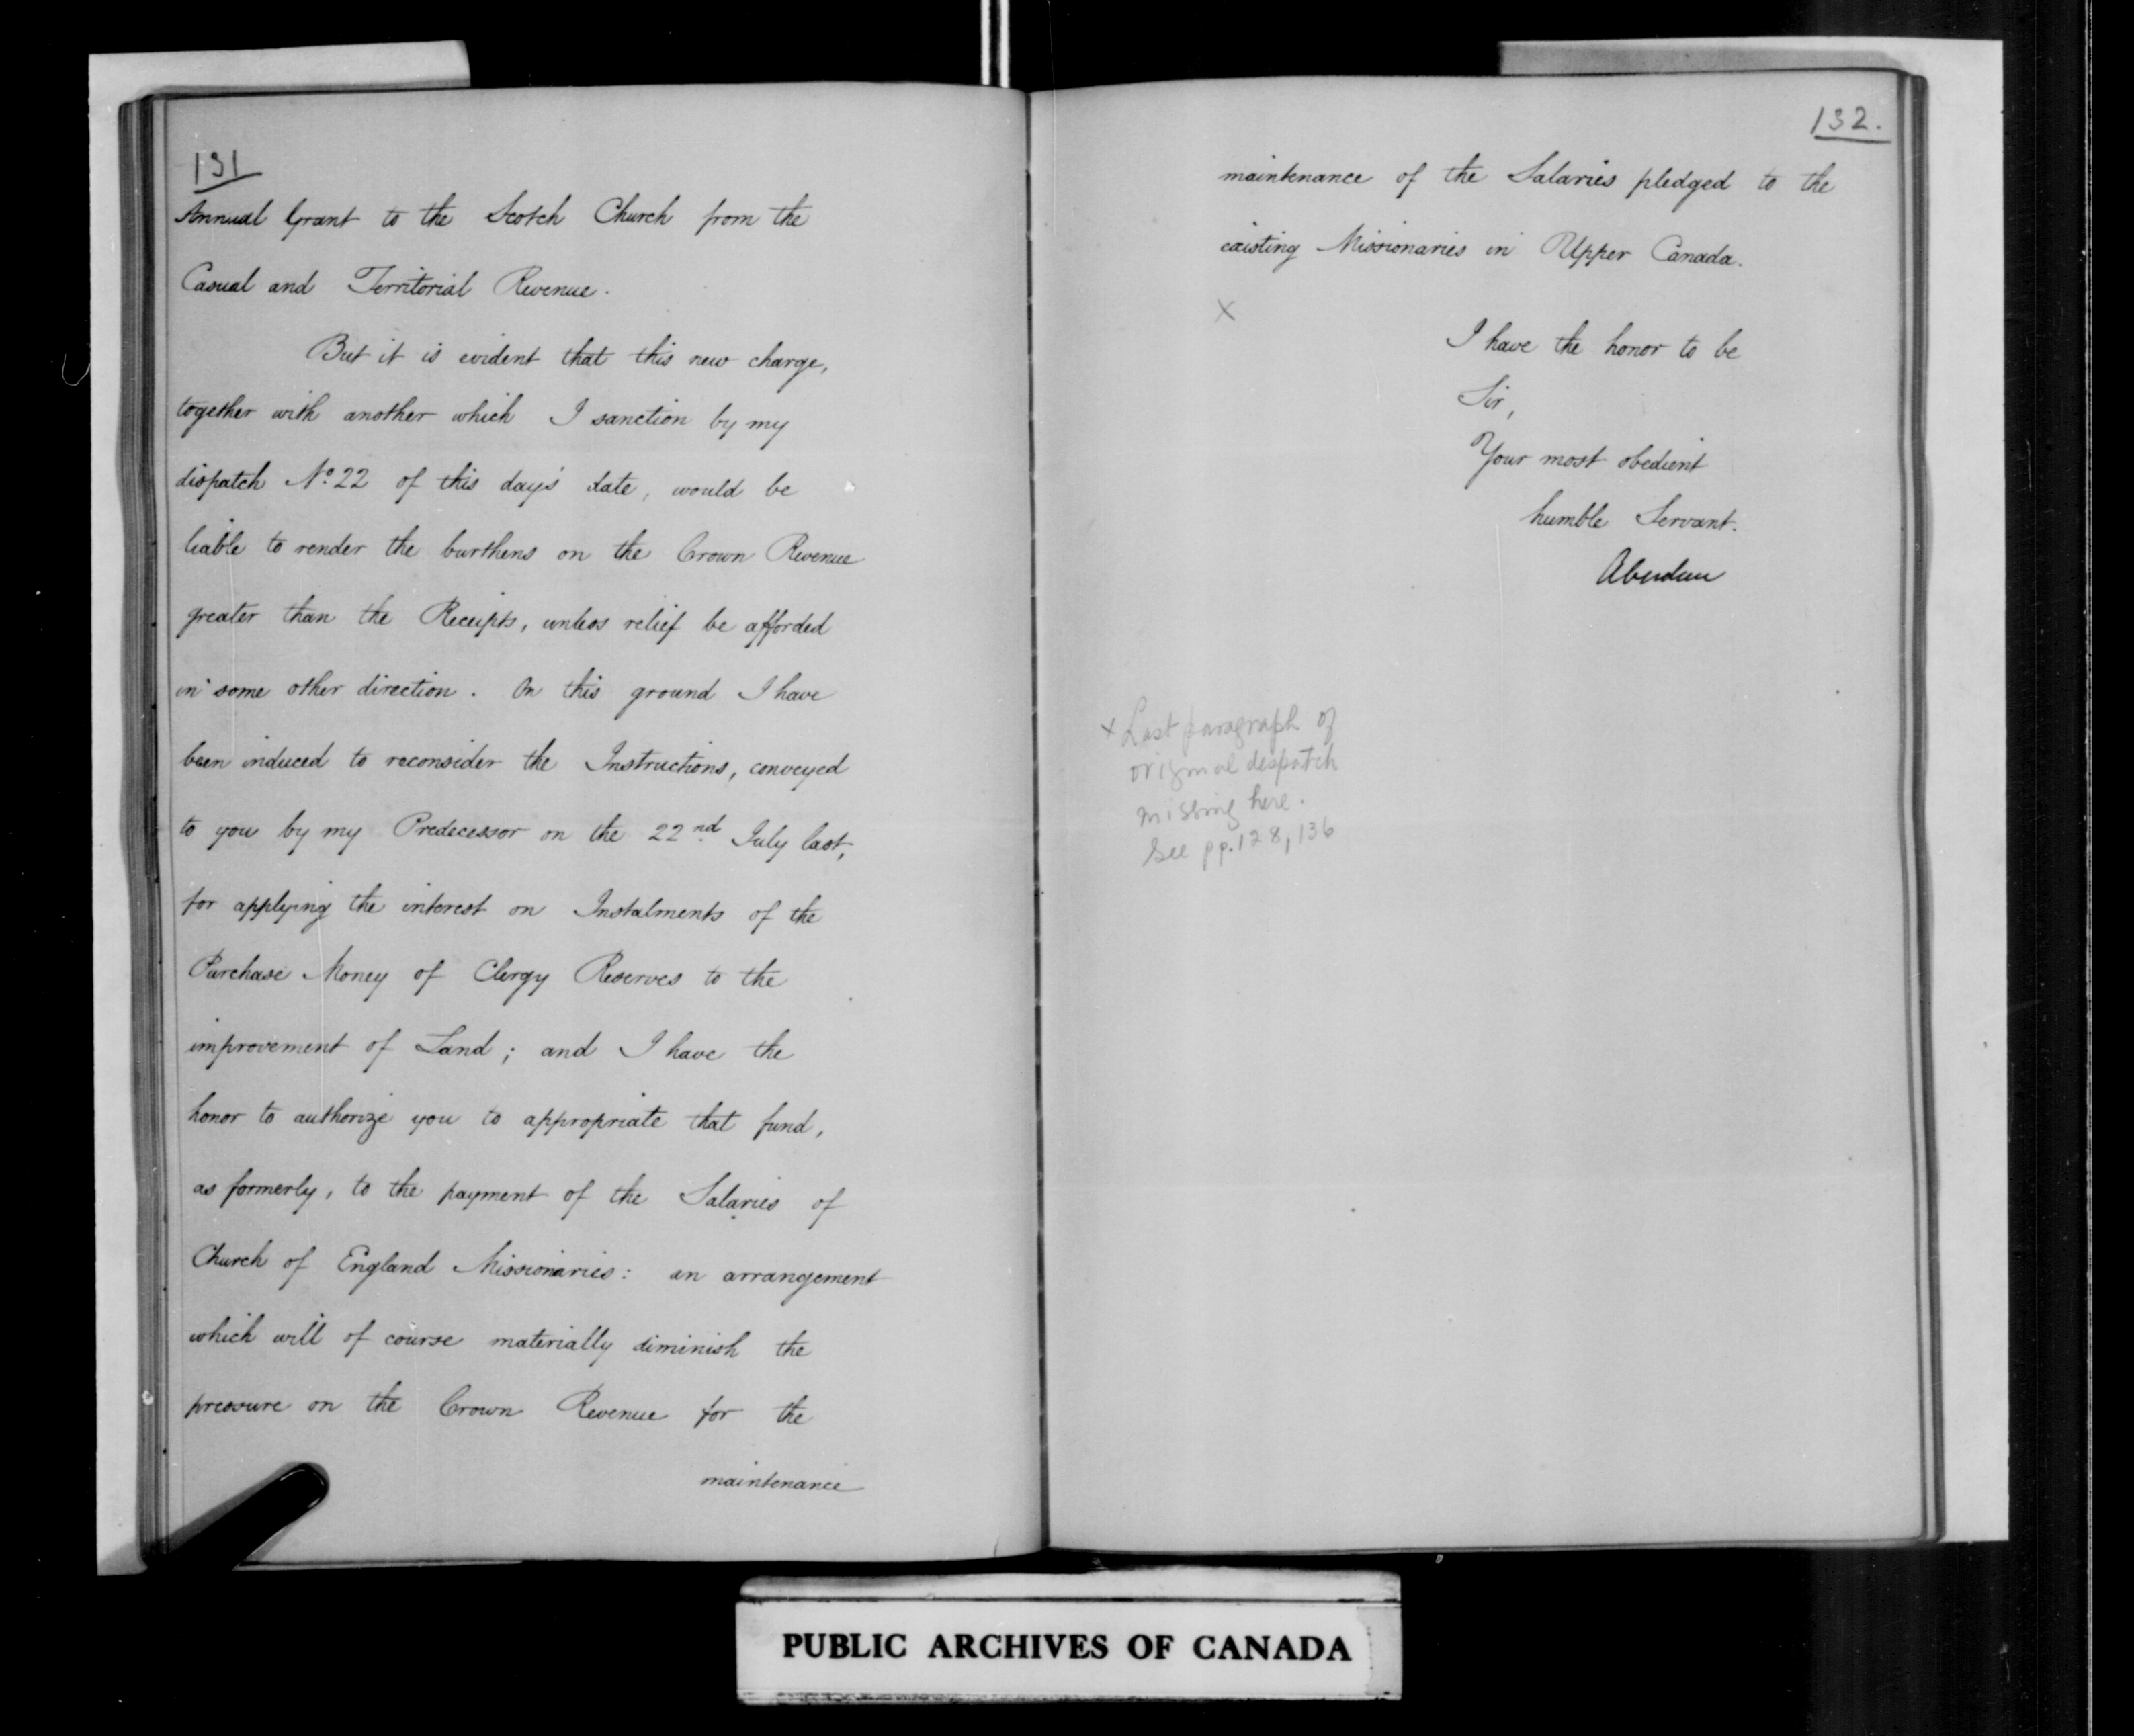 131
Annual Grant to the Scotch Church from the
Casual and Territorial Revenue.
But it is evident that this new charge,
together with another which I sanction by my
dispatch No. 22 of this day's date, would be
liable to render the burthens on the Crown Revenue
greater than the Receipts, unless relief be afforded
in some other direction. On this ground I have
been induced to reconsider the Instructions, conveyed
to you by my Predecessor on the 22nd July last,
for applying the interest on Instalments of the
Purchase Money of Clergy Reserves to the
improvement of Land; and I have the
honor to authorize you to appropriate that fund,
as formerly, to the payment of the Salaries of
Church of England Missionaries: an arrangement
which will of course materially diminish the
pressure on the Crown Revenue for the
maintenance
132.
maintenance of the Salaries pledged to the
existing Missionaries in Upper Canada.
x
I have the honor to be
Sir,
Your most obedient
humble Servant.
Aberdeen
x Last paragraph of
original despatch
missing here.
See pp. 128, 136
PUBLIC ARCHIVES OF CANADA